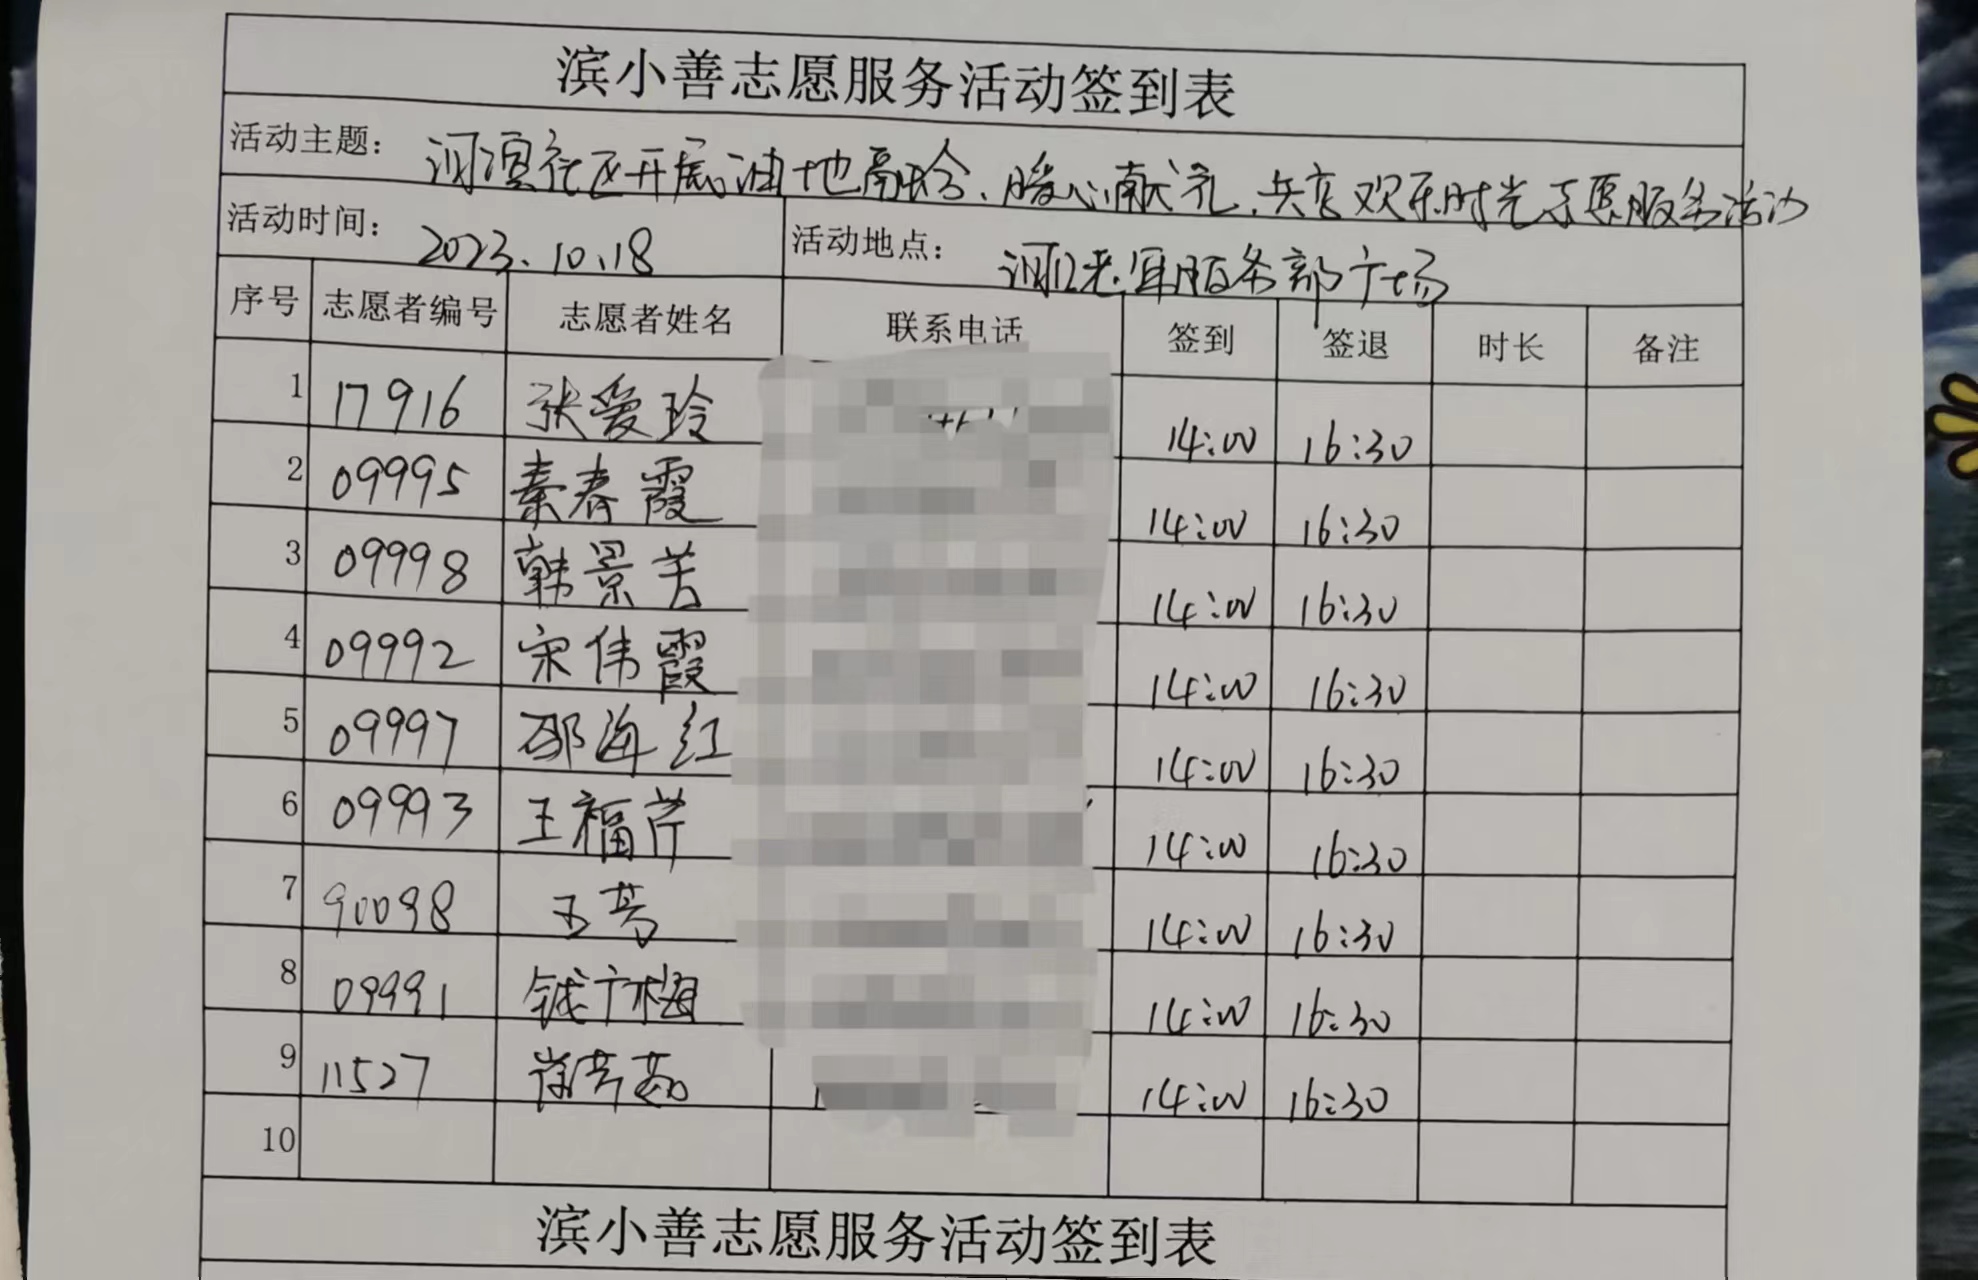 滨小善志愿服务活动签到表
活动主题：河滨社区开展油地融合、暖心献礼、共享欢乐时光志愿服务活动
活动时间：2023.10.18 活动地点：河滨老年服务部广场
序号 志愿者编号 志愿者姓名 联系电话 签到 签退 时长 备注
1 17916 张爱玲 14:00 16:30
2 09995 秦春霞 14:00 16:30
3 09998 韩景芳 14:00 16:30
4 09992 宋伟霞 14:00 16:30
5 09997 邵海红 14:00 16:30
6 09993 王福芹 14:00 16:30
7 90098 王芳 14:00 16:30
8 09991 钱广梅 14:00 16:30
9 11527 14:00 16:30
10
滨小善志愿服务活动签到表